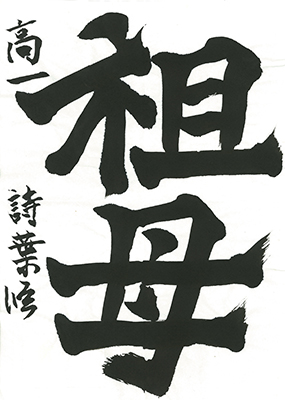 祖母
高一 詩葉